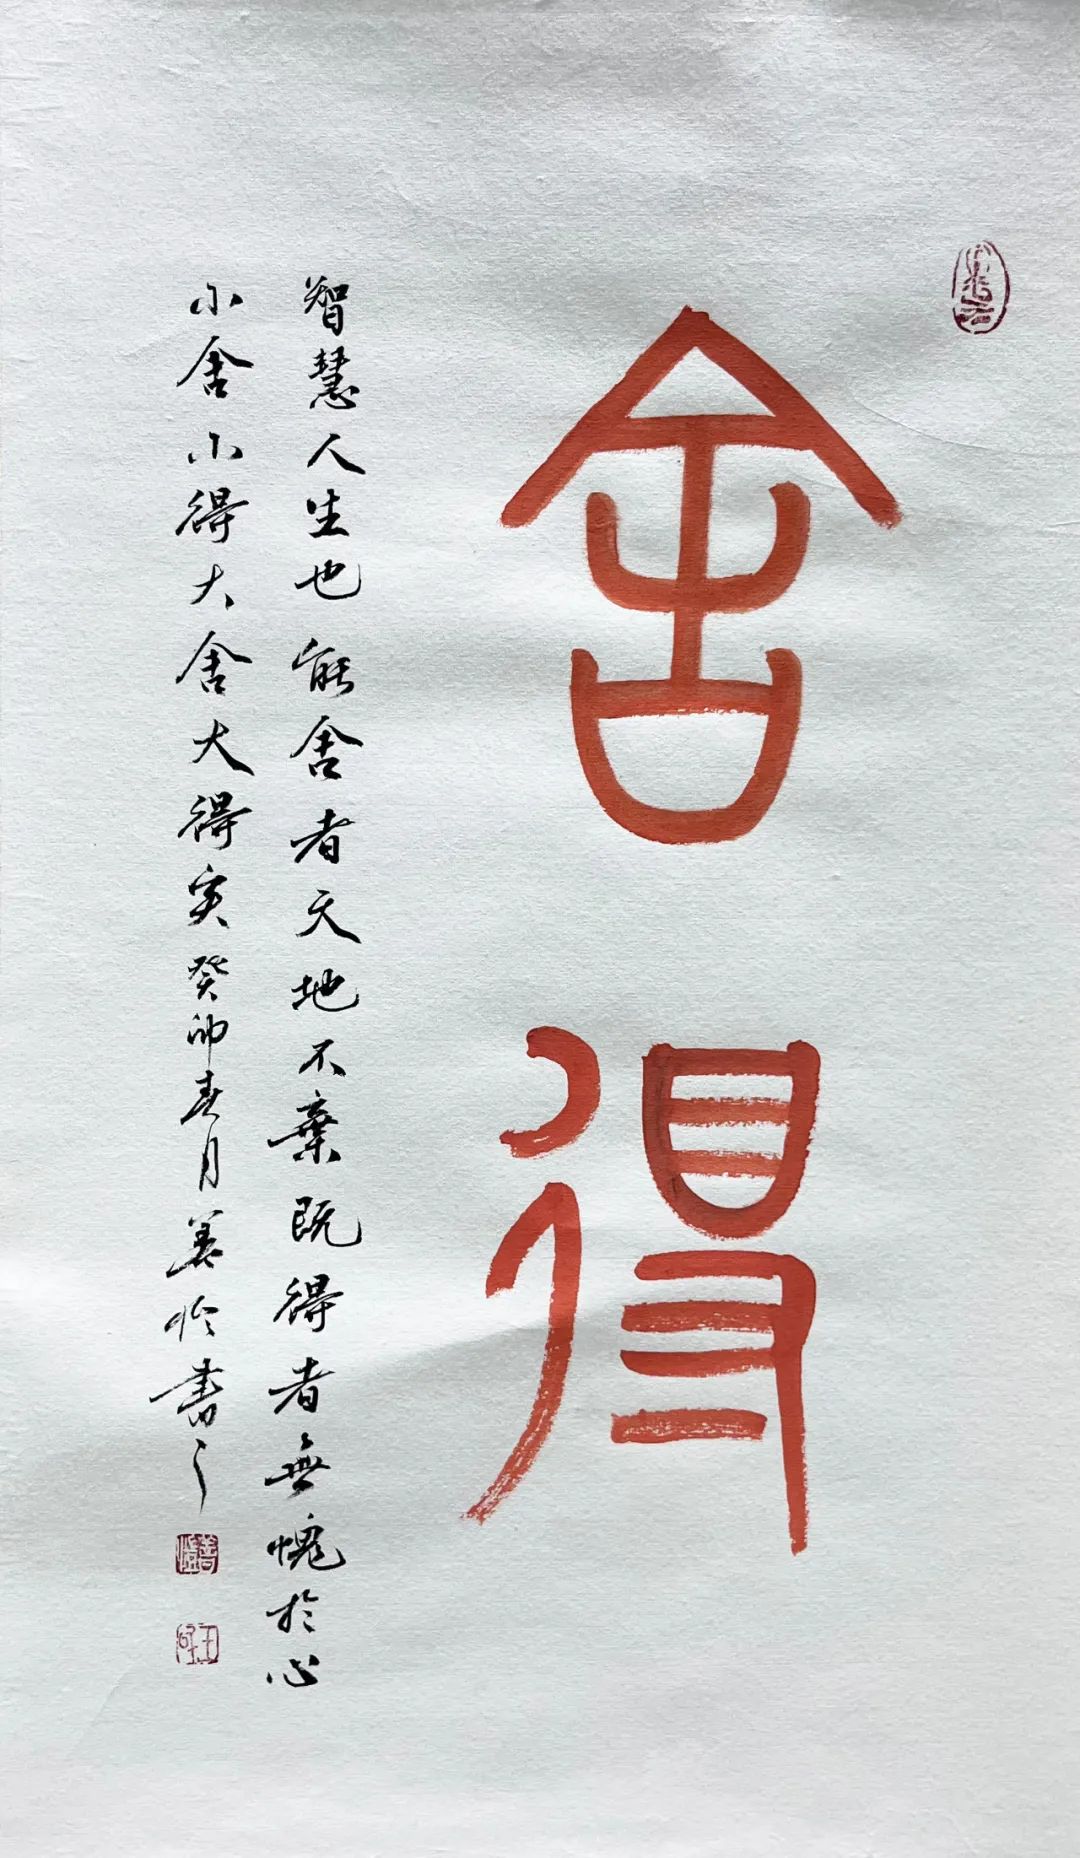 舍得
智慧人生也能舍者天地不棄既得者無愧於心
小舍小得大舍大得矣癸卯春月善怜書之